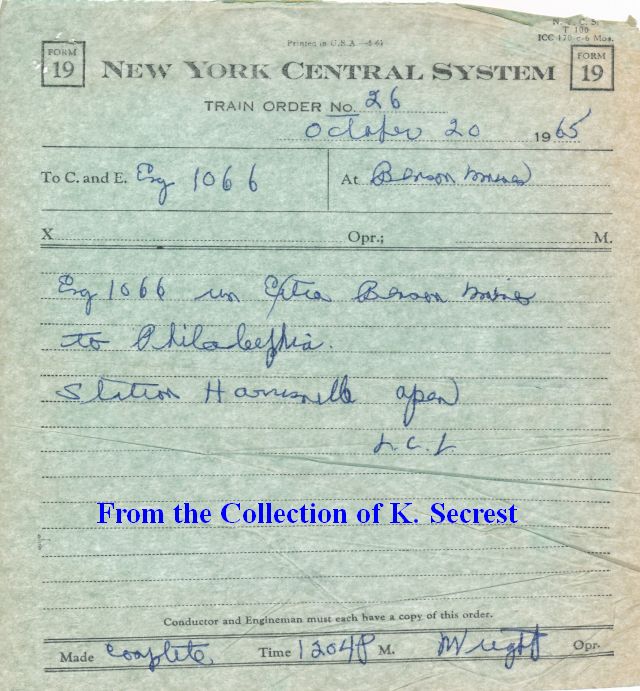 N. Y. C. S.
T 100
ICC 170-c-6 Mos.
Printed in U.S.A.—4-61
FORM 19 NEW YORK CENTRAL SYSTEM FORM 19
TRAIN ORDER No. 26
October 20 1965
To C. and E. Eng 1066 At Benson mines
X Opr.; M.
Eng 1066 run Extra Benson mines
to Philadelphia.
Station Harrisville open
L.C.L
From the Collection of K. Secrest
Conductor and Engineman must each have a copy of this order.
Made Complete, Time 1204P M. Wright Opr.